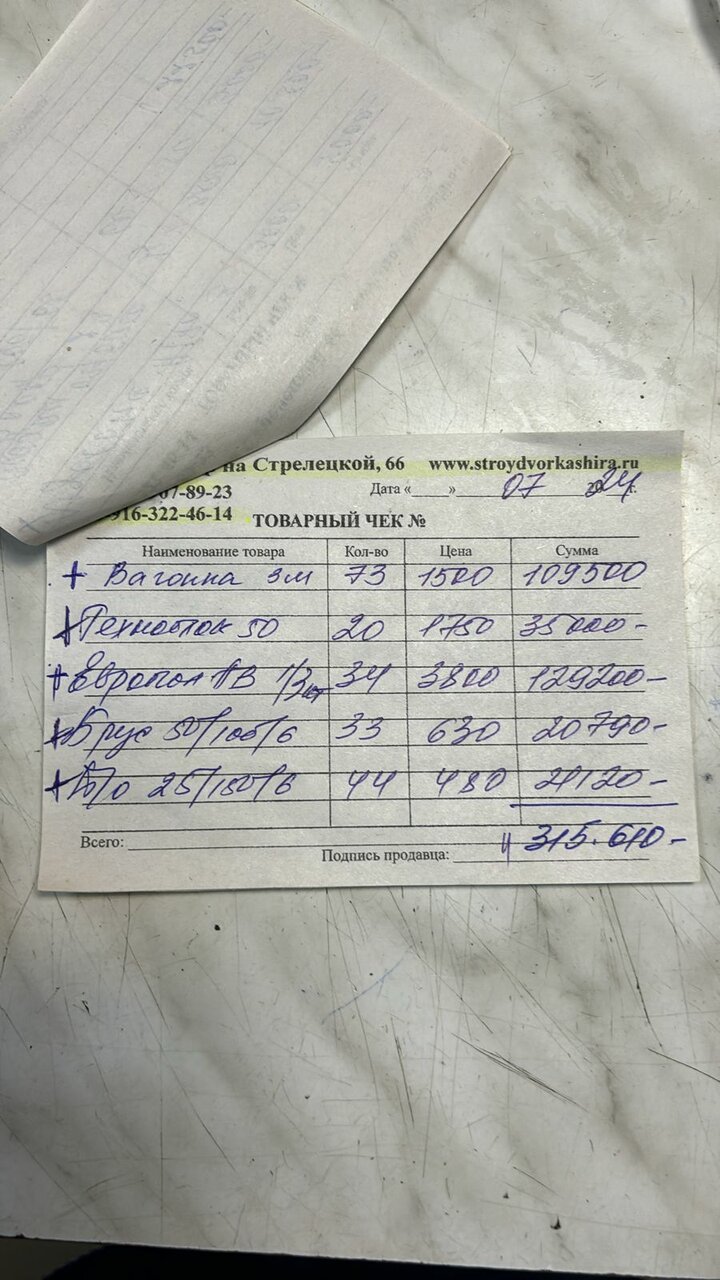 на Стрелецкой, 66 www.stroydvorkashira.ru
07-89-23 Дата «____» 07 2024 г.
916-322-46-14 ТОВАРНЫЙ ЧЕК №
Наименование товара Кол-во Цена Сумма
+ Вагонка 3м 73 1500 109500
+ Техноблок 50 20 1750 35000-
+ Европол АВ 34 3800 129200-
+ Брус 50/100/6 33 630 20790-
+ 25/150/6 44 480 21120-
Всего: 315.610-
Подпись продавца: